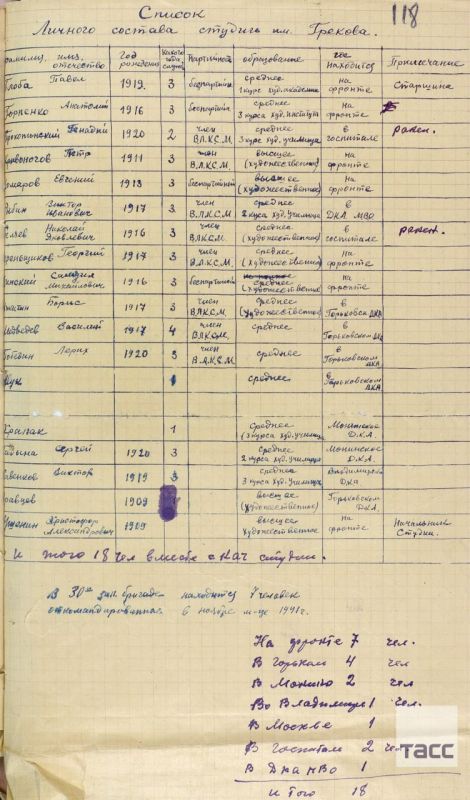 118
Список
Личного состава студии им. Грекова.
фамилия, имя, отчество | год рождения | какого года службы | партийность | образование | где находится | Примечание
Глоба Павел | 1919 | 3 | беспартийн | среднее 1 курс худ. академии | на фронте | Старшина
Горпенко Анатолий | 1916 | 3 | беспартийн | среднее 3 курса худ. институт | на фронте
Прокопинский Геннадий | 1920 | 2 | член В.Л.К.С.М. | среднее 3 курс худ. училища | в госпитале | ранен.
Кривоногов Петр | 1911 | 3 | член В.Л.К.С.М. | высшее (художественное) | на фронте
Комаров Евгений | 1913 | 3 | беспартийный | высшее (художественное) | на фронте
Виктор Иванович | 1917 | 3 | член В.Л.К.С.М. | среднее 2 курса худ. училища | в Д.К.А. МВО
Беляев Николай Яковлевич | 1916 | 3 | член В.Л.К.С.М. | среднее (художественное) | в госпитале | ранен.
Георгий | 1917 | 3 | член В.Л.К.С.М. | среднее (художественное) | на фронте
Михайлович | 1916 | 3 | беспартийный | среднее (художественное) | на фронте
Борис | 1917 | 3 | член В.Л.К.С.М. | среднее (художественное) | в Горьковск. ДКА
Медведев Василий | 1917 | 4 | член В.Л.К.С.М. | среднее | в Горьковском ДКА
Лерих | 1920 | 3 | член В.Л.К.С.М. | среднее | в Горьковском ДКА
Жук | среднее | в Горьковском ДКА
Крапак | 1 | Среднее (3 курса худ. училища | Монинское Д.К.А.
Сергей | 1920 | 3 | среднее 2 курса худ. училища | Монинское Д.К.А.
Савенков Виктор | 1919 | 3 | среднее 3 курса худ. училища | Владимирский ДКА
Кравцов | 1909 | высшее (художественное) | Горьковском ДКА
Христофор Александрович | 1909 | высшее художественное | на фронте | Начальник Студии.
И того 18 чел вместе с нач студии.
В 30ой бригаде находится 7 человек
откомандированная в ноябре м-це 1941г.
На фронте 7 чел.
В Горьком 4 чел
В Монино 2 чел
Во Владимире 1 чел.
В Москве 1
В госпитале 2 чел
В Дка мво 1
И того 18
ТАСС